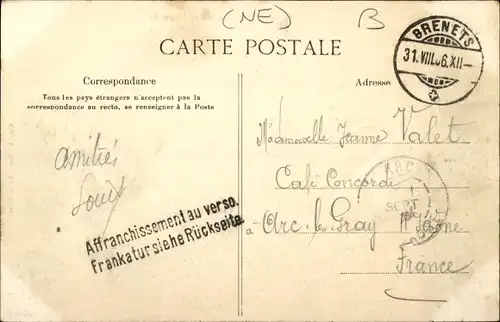 (NE) B
CARTE POSTALE
BRENETS
31.VIII.06.XII-
Correspondance
Tous les pays étrangers n'acceptent pas la
correspondance au recto, se renseigner à la Poste
Adresse
Amitiés
Louis
Affranchissement au verso.
Frankatur siehe Rückseite.
Mademoiselle Jeanne Valet
Café Concorde
à Arc-les-Gray Hte Saône
France
ARC
1
SEPT